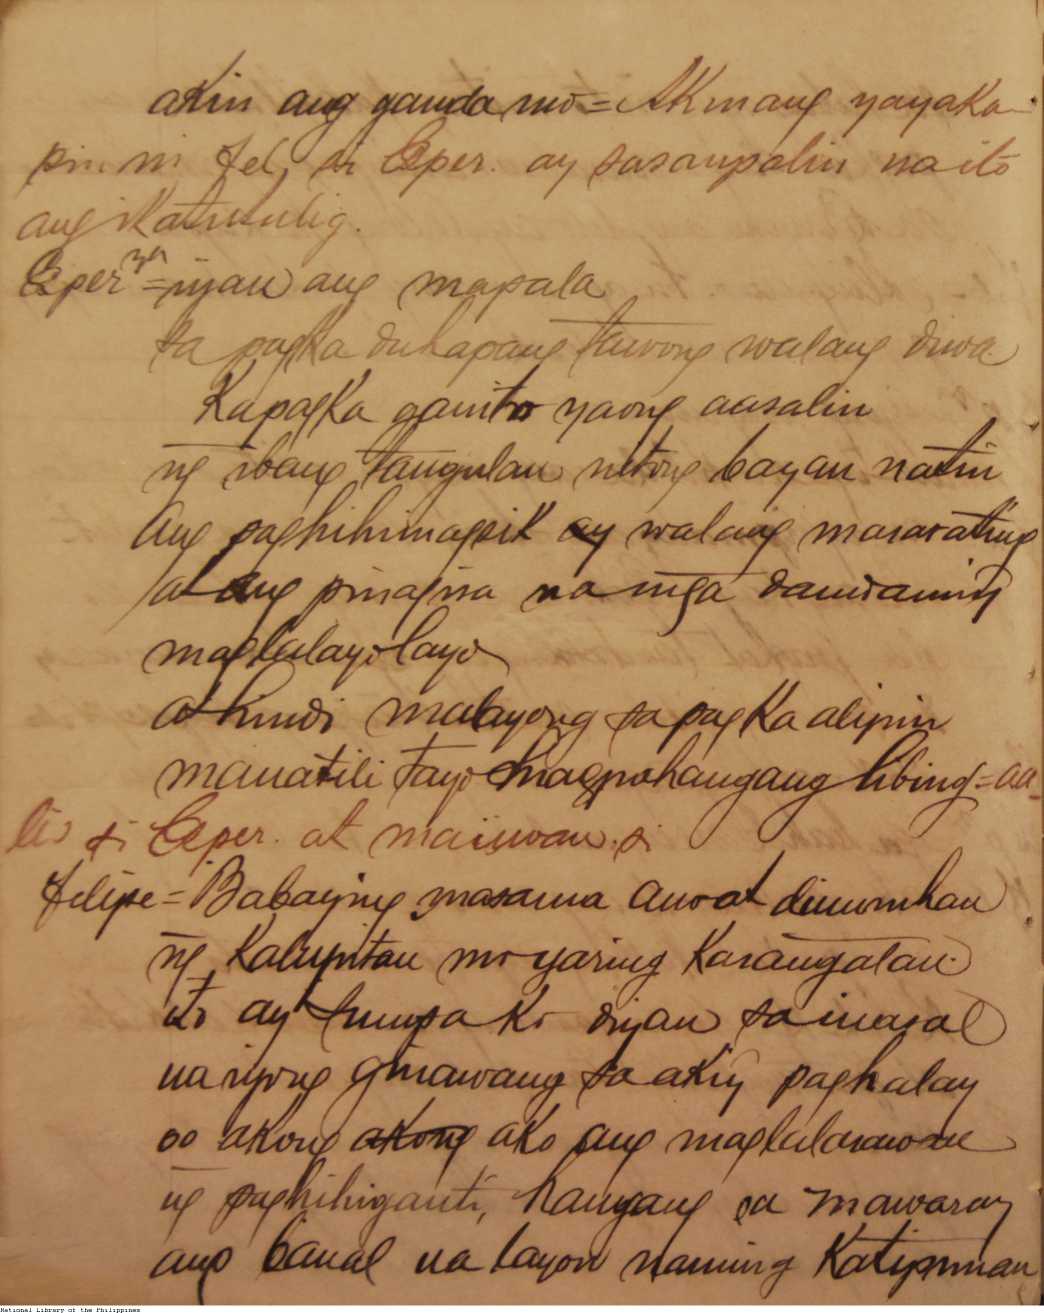 akin ang ganda mo = Akmang yayaka
pin ni Fel, si Esper. ay sasampalin na ito
ang ikatutulig.
Esper = iyan ang mapala
sa pagka duhapang tawong walang diwa
Kapagka ganito yaong aasalin
ng ibang tangulan nitong bayan natin
Ang paghihimagsik ay walang mararating
at ang pinagisa na mga damdaming
maglalayolayo
at hindi malayong sa pagka alipin
manatili tayo magpahangang libing = aa-
lis si Esper. at maiiwan si
Felipe = Babaying masama dinumhan
ng Kalupitan mo yaring Karangalan
ito ay sumpa ko diyan sa inasal
na iyong ginawang sa aking paghalay
oo akong akong ako ang maglalarawan
ng paghihiganti, hangang sa mawaray
ang banal na layon naming Katipunan
National Library of the Philippines